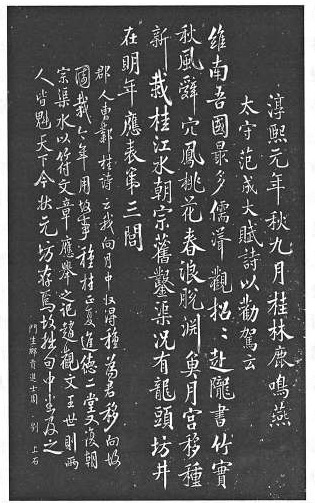 淳熙元年秋九月桂林鹿鳴燕
太守范成大賦詩以勸駕云
維南吾國最多儒聳觀招〻赴隴書竹實
秋風辭穴鳳桃花春浪脫淵魚月宮移種
新栽桂江水朝宗舊鑿渠況有龍頭坊井
在明年應表第三閭
郡人曹鄴桂詩云我向月中收得種為君移向故
園栽今年用故事種桂正夏進德二堂又復朝
宗渠水以符文章應舉之記趙觀文王世則兩
人皆魁天下今狀元坊存焉故拙句中悉及之
門生鄉貢進士周 劉 上石